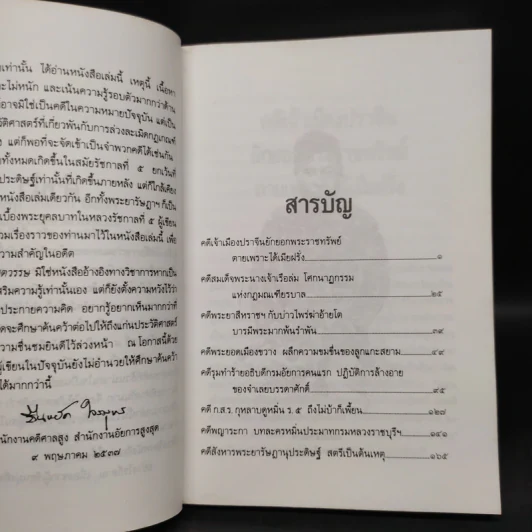 เท่านั้น ได้อ่านหนังสือเล่มนี้ เหตุนี้ เนื้อหา
ะไม่หนัก และเน้นความรู้รอบตัวมากกว่าด้าน
อาจมิใช่เป็นคดีในความหมายปัจจุบัน แต่เป็น
วัติศาสตร์ที่เกี่ยวพันกับการล่วงละเมิดกฎเกณฑ์
ง แต่ก็พอที่จะจัดเข้าเป็นจำพวกคดีได้เช่นกัน
ทั้งหมดเกิดขึ้นในสมัยรัชกาลที่ ๕ ยกเว้นคดี
ประดิษฐ์เท่านั้นที่เกิดขึ้นภายหลัง แต่ก็ใกล้เคียง
งเล่มเดียวกัน อีกทั้งพระยารัษฎาฯ ก็เป็น
เบื้องพระยุคลบาทในหลวงรัชกาลที่ ๕ ผู้เขียน
วมเรื่องราวของท่านมาไว้ในหนังสือเล่มนี้ เพื่อ
วามสำคัญในอดีต
ตวรรษ มิใช่หนังสืออ้างอิงทางวิชาการหากเป็น
สริมความรู้เท่านั้นเอง แต่ก็ยังตั้งความหวังไว้ว่า
ประกายความคิด อยากรู้อยากเห็นมากกว่าที่
ดจะศึกษาค้นคว้าต่อไปให้ถึงแก่นประวัติศาสตร์
วามชื่นชมยินดีไว้ล่วงหน้า ณ โอกาสนี้ด้วย
ผู้เขียนในปัจจุบันยังไม่อำนวยให้ศึกษาค้นคว้า
ได้มากกว่านี้
นักงานคดีศาลสูง สำนักงานอัยการสูงสุด
๙ พฤษภาคม ๒๕๓๗
สารบัญ
คดีเจ้าเมืองปราจีนยักยอกพระราชทรัพย์
ตายเพราะได้เมียฝรั่ง ๑
คดีสมเด็จพระนางเจ้าเรือล่ม โศกนาฏกรรม
แห่งกฎมณเฑียรบาล ๒๕
คดีพระยาสีหราชฯ กับบ่าวไพร่ฆ่าอ้ายโต
บารมีพระมากพ้นรำพัน ๓๙
คดีพระยอดเมืองขวาง ผลึกความขมขื่นของลูกแกะสยาม ๔๙
คดีรุมทำร้ายอธิบดีกรมอัยการคนแรก ปฏิบัติการล้างอาย
ของจำเลยบรรดาศักดิ์ ๙๕
คดี ก.ส.ร. กุหลาบดูหมิ่น ร. ๕ ถึงไม่บ้าก็เพี้ยน ๑๒๗
คดีพญาระกา บทละครหมิ่นประมาทกรมหลวงราชบุรีฯ ๑๔๑
คดีสังหารพระยารัษฎานุประดิษฐ์ สตรีเป็นต้นเหตุ ๑๖๕